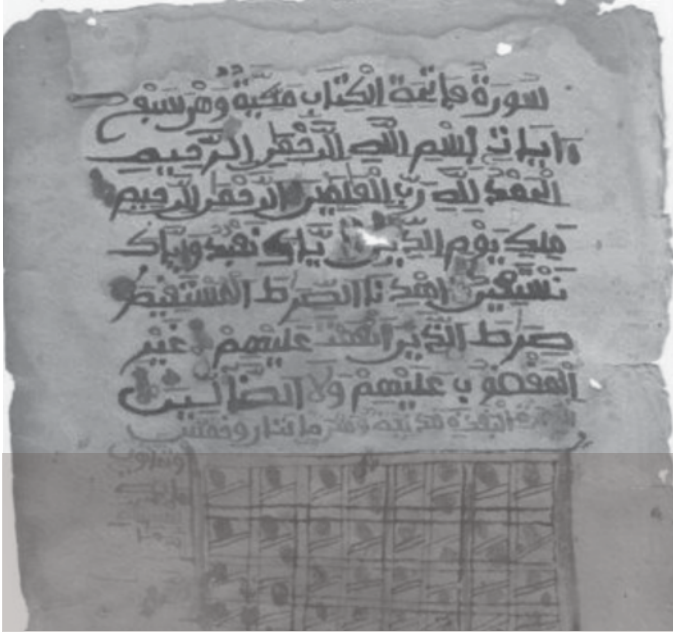 سورة فاتحة الكتاب مكية وهي سبع
ءايات بسم الله الرحمن الرحيم
الحمد لله رب العلمين الرحمن الرحيم
ملك يوم الدين إياك نعبد وإياك
نستعين اهدنا الصرط المستقيم
صرط الذين أنعمت عليهم غير
المغضوب عليهم ولا الضالين
سورة البقرة مدنية وهي مائتان وخمس